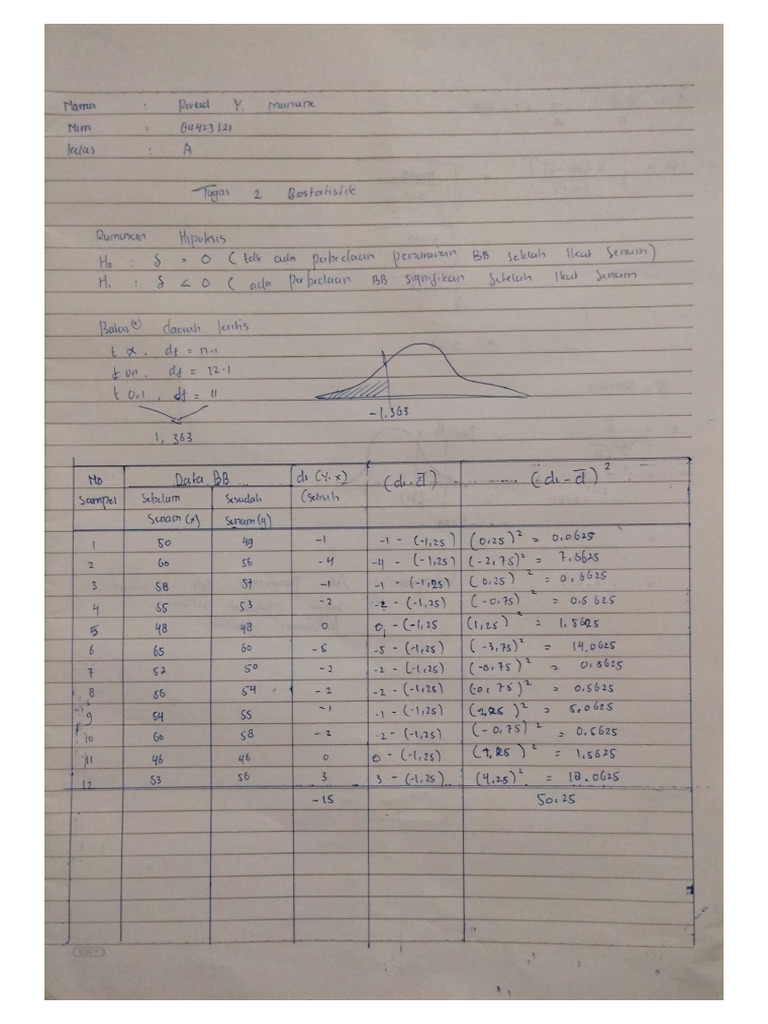 Nama :
Nim :
kelas : A
Tugas 2 Biostatistik
Rumusan Hipotesis
H₀ : δ = 0 ( tdk ada perbedaan penurunan BB setelah Ikut Senum)
H₁ : δ < 0 ( ada perbedaan BB signifikan Setelah Ikut Senum
Batas daerah kritis
t α . df = n-1
t 0,1 . df = 12-1
t 0,1 . df = 11
-1,363
1, 363
No Sampel Data BB di (y-x) (di-d̅) (di-d̅)²
Sebelum Sesudah (Selisih
Senam (x) Senam (y)
1 50 49 -1 -1 - (-1,25) (0,25)² = 0.0625
2 60 56 -4 -4 - (-1,25) (-2,75)² = 7.5625
3 58 57 -1 -1 - (-1,25) (0,25)² = 0,0625
4 55 53 -2 -2 - (-1,25) (-0,75)² = 0.5625
5 48 48 0 0, - (-1,25 (1,25)² = 1.5625
6 65 60 -5 -5 - (-1,25) (-3,75)² = 14.0625
7 52 50 -2 -2 - (-1,25) (-0,75)² = 0.5625
8 56 54 -2 -2 - (-1,25) (-0,75)² = 0.5625
9 54 55 -1 -1 - (-1,25) (2,25)² = 5,0625
10 60 58 -2 -2 - (-1,25) (-0,75)² = 0.5625
11 46 46 0 0 - (-1,25) (1,25)² = 1.5625
12 53 56 3 3 - (-1,25) (4,25)² = 18.0625
-15 50.25